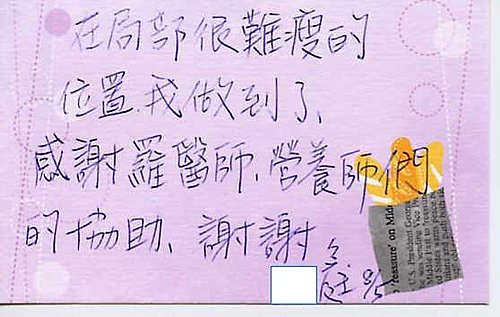 在局部很難瘦的
位置.我做到了、
感謝羅醫師、營養師們
的協助、謝謝
庭 8/5
reassure' on Mide
U.S. President Geor